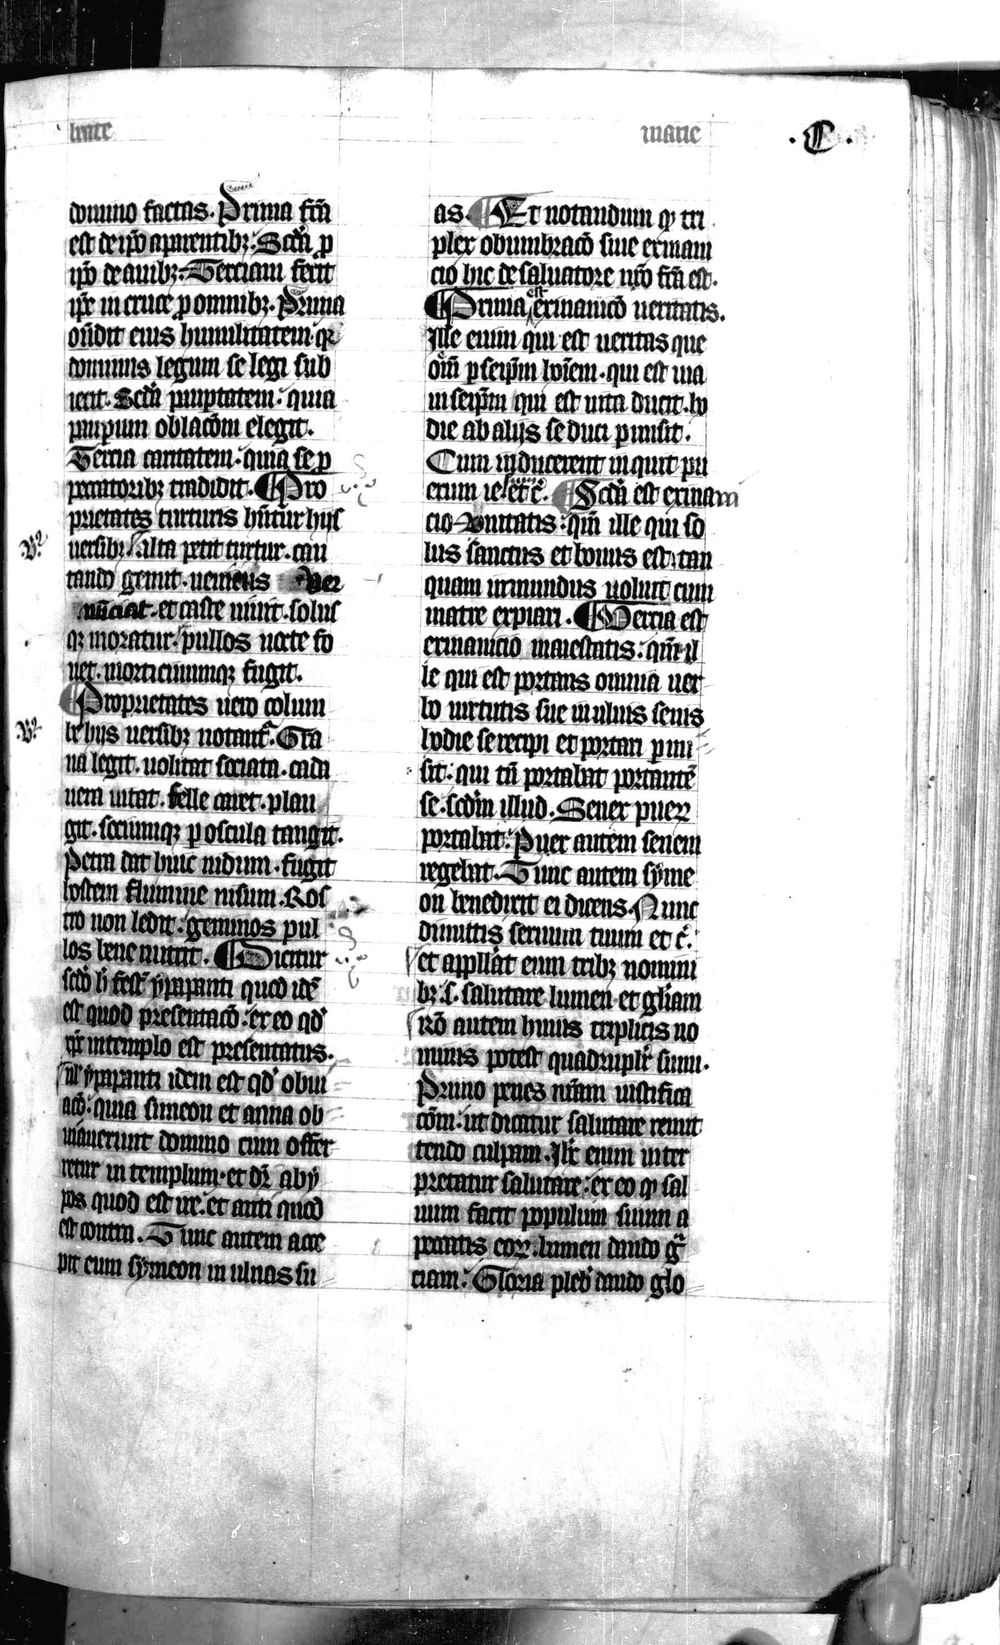 beate marie .C.
domino factas. Prima fcā
est de ip̄o a parentibz. Scd̄a ꝓ
ip̄o de auibz. Terciam fecit
ip̄e in cruce ꝓ omnibz. Prima
oñdit eius humilitatem. qz
dominus legum se legi sub
iecit. Scd̄a paupertatem. quia
pauperum oblacōm elegit.
Tercia caritatem. quia se ꝓ
peccatoribz tradidit. Pro
prietates turturis hñtur hijs
versibz. Alta petit turtur. can
tando gemit. veniens ver
nūciat. et caste viuit. solus
qz moratur. pullos nocte fo
uet. morticinumqz fugit.
Proprietates vero colum
be hijs versibz notant᷑. Gra
na legit. volitat sociata. cada
uera vitat. felle caret. plan
git. sociumqz ꝑ oscula tangit.
Petra dat huic nidum. fugit
hostem flumine visum. Ros
tro non ledit. geminos pul
los bene nutrit. Dicitur
scd̄o h̄ fest᷑ ypapanti quod idē
est quod presentacō. ex eo qd̄
xp̄c in templo est presentatus.
ul̓ ypapanti idem est qd̄ obui
acō. quia simeon et anna ob
uiauerunt domino cum offer
retur in templum. et dr̄ ab y
pa quod est ire. et anti quod
est contra. Tunc autem acce
pit eum symeon in ulnas su
as. Et notandum qꝫ tri
plex obumbracō siue exinani
cio hic de saluatore nr̄o fcā est.
Prima est exinanicō veritatis.
Ille enim qui est veritas que
om̄ē ꝑ seip̄m hoīem. qui est via
in seip̄m qui est vita ducit. ho
die ab alijs se duci ꝑmisit.
Cum inducerent inquit pu
erum ie. et c̄. Scd̄a est exinani
cio bonitatis. qm̄ ille qui so
lus sanctus et bonus est. tan
quam inmundus voluit cum
matre expiari. Tercia est
exinanicio maiestatis. qm̄ il
le qui est portans omnia ver
bo virtutis sue in ulnis senis
hodie se recipi et portari ꝑmi
sit. qui tn̄ portabat portantē
se. scd̄m illud. Senex puerū
portabat. Puer autem senem
regebat. Tunc autem syme
on benedixit ei dicens. Nunc
dimittis seruum tuum et c̄.
et appll̄at eum tribz nomini
bz. s. salutare lumen et gl̄iam
Rō autem huius triplicis no
minis potest quadrupl̓r sumi.
Primo penes nr̄am iustifica
cōm. ut dicatur salutare remit
tendo culpam. Ih̄c enim inter
pretatur salutare. ex eo qꝫ sal
uum facit populum suum a
peccatis eorū. lumen dando gr̄
ciam. Gloria plebi dando glo